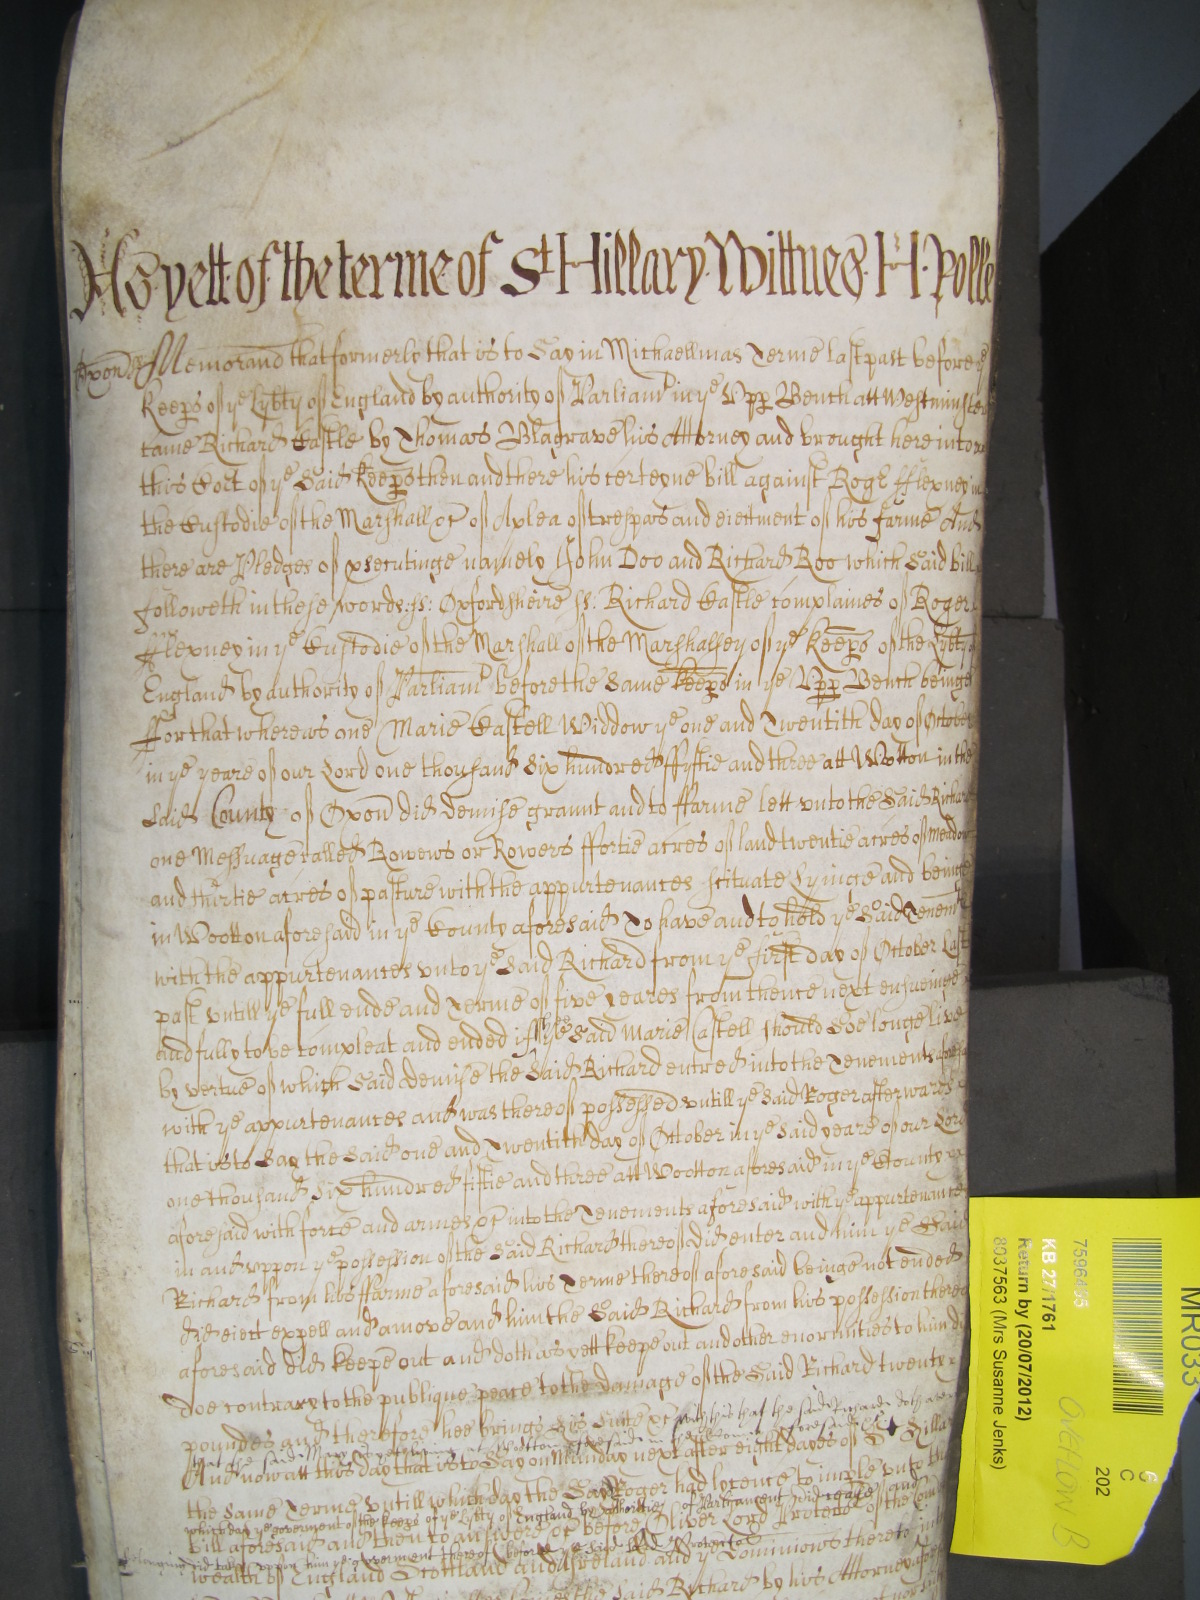 As yett of the terme of St Hillary Wittnes H: Rolle
Oxon ss Memorand that formerly that is to Say in Michaellmas Terme last past before ye
Keeps of ye Lybty of England by authority of Parliamt in ye Upp Bench att Westminster
came Richard Castle by Thomas Blagrave his Attorney and brought here into
this Cort of ye Said Keeps then and there his certeyne bill against Rog fflexney in
the Custodie of the Marshall &c of A plea of trespas and eiectment of his farme And
there are Pledges of p'secutinge namely John Doo and Richard Roo which Said bill
followeth in these words: ss: Oxfordsheire ss. Richard Castle complaines of Roger
fflexney in ye Custodie of the Marshall of the Marshallsey of ye Keeps of the Lybty of
England by authority of Parliamt before the Same Keeps in ye Upp Bench beinge
ffor that whereas one Marie Castell Widdow ye one and Twentith day of October
in ye yeare of our Lord one thousand Six hundred ffyftie and three att Wotton in the
Said County of Oxon did demise graunt and to ffarme lett unto the Said Richard
one Messuage called Bowews or Rowers ffortie acres of land twentie acres of meadow
and thirtie acres of pasture with the appurtenances scituate Lyinge and beinge
in Wootton aforesaid in ye County aforesaid To have and to hold ye Said Tenemts
with the appurtenances unto ye Said Richard from ye first day of October Last
past untill ye full ende and Terme of five yeares from thence next ensueinge
and fully to be compleat and ended if ye Said Marie Castell should Soe longe live
by vertue of which Said demise the Said Richard entred into the Tenements aforesaid
with ye appurtenances and was thereof possessed untill ye Said Roger afterwards
that is to Say the Said one and Twentith day of October in ye Said yeare of our Lord
one thousand Six hundred fiftie and three att Wootton aforesaid in ye County
aforesaid with force and armes &c into the Tenements aforesaid with ye appurtenances
in and uppon ye possession of the Said Richard thereof did enter and him ye Said
Richard from his ffarme aforesaid his Terme thereof aforesaid beinge not ended
did eiect expell and amove and him the Said Richard from his possession thereof
aforesaid did keepe out and doth as yett keepe out and other enormities to him did
doe contrary to the publique peace to the damage of the Said Richard twenty
poundes and therefore hee brings his Suite &c And this that the said
that the said Mary is yet living at Wootton aforesaid in the County aforesaid
And now att this day that is to Say on Munday next after eight dayes of St Hillary
the Same Terme untill which day the Said Roger had lycence to imple unto the
which day ye goverment of the keeps of ye Lybty of England by authoritie of Parliament did cease and
bill aforesaid and then to answere &c before Oliver Lord Protector of the Comon
did take uppon him ye goverment thereof before ye said Lord Protector
wealth of England Scotland and Ireland and ye Dominions thereto
the Said Richard by his Attorney
MR033
6
C
202
7596495
KB 27/1761
Return by (20/07/2012)
8037563 (Mrs Susanne Jenks)
OVERTON B